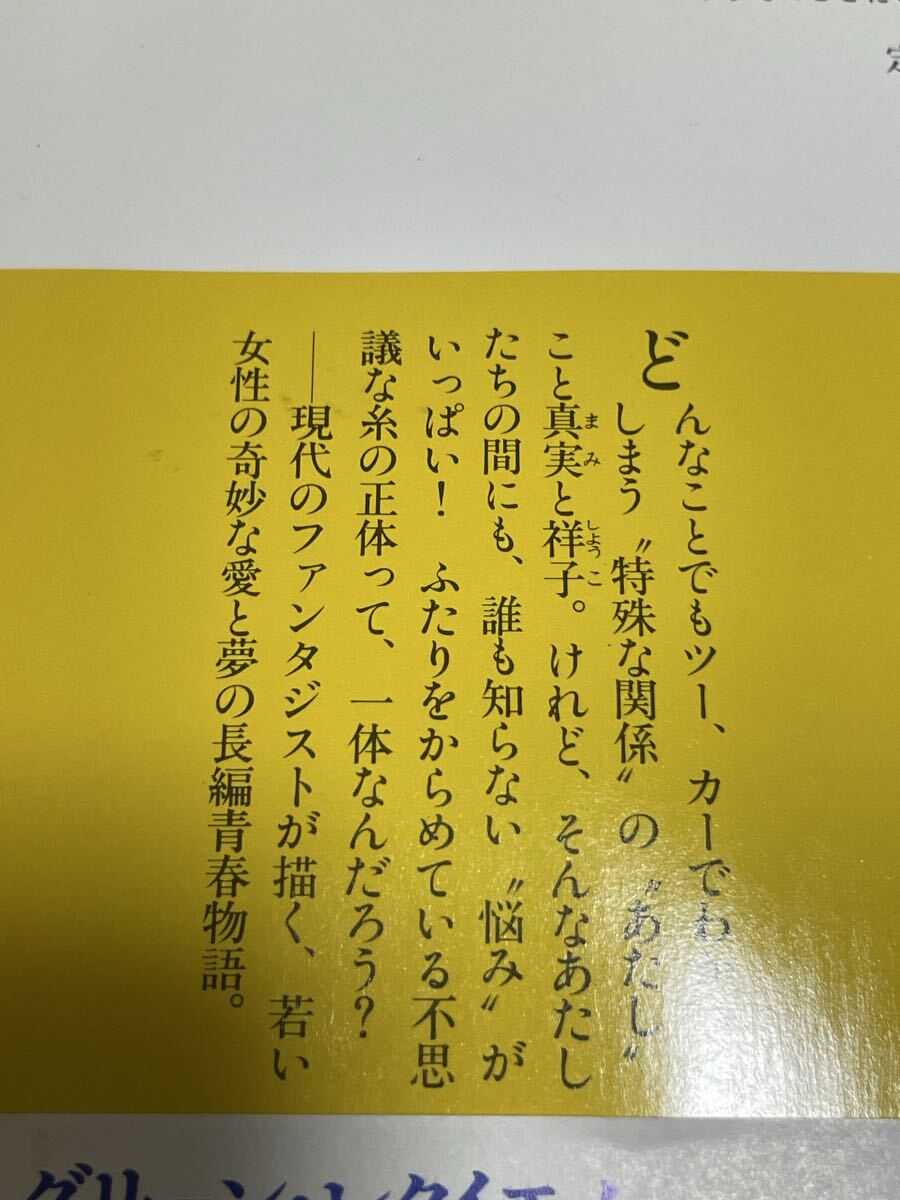 定
どんなことでもツー、カーでわかって
しまう〝特殊な関係〟の〝あたし〟
こと真実と祥子。けれど、そんなあたし
まみ しようこ
たちの間にも、誰も知らない〝悩み〟が
いっぱい！　ふたりをからめている不思
議な糸の正体って、一体なんだろう？
――現代のファンタジストが描く、若い
女性の奇妙な愛と夢の長編青春物語。
グリーン・レクイエム